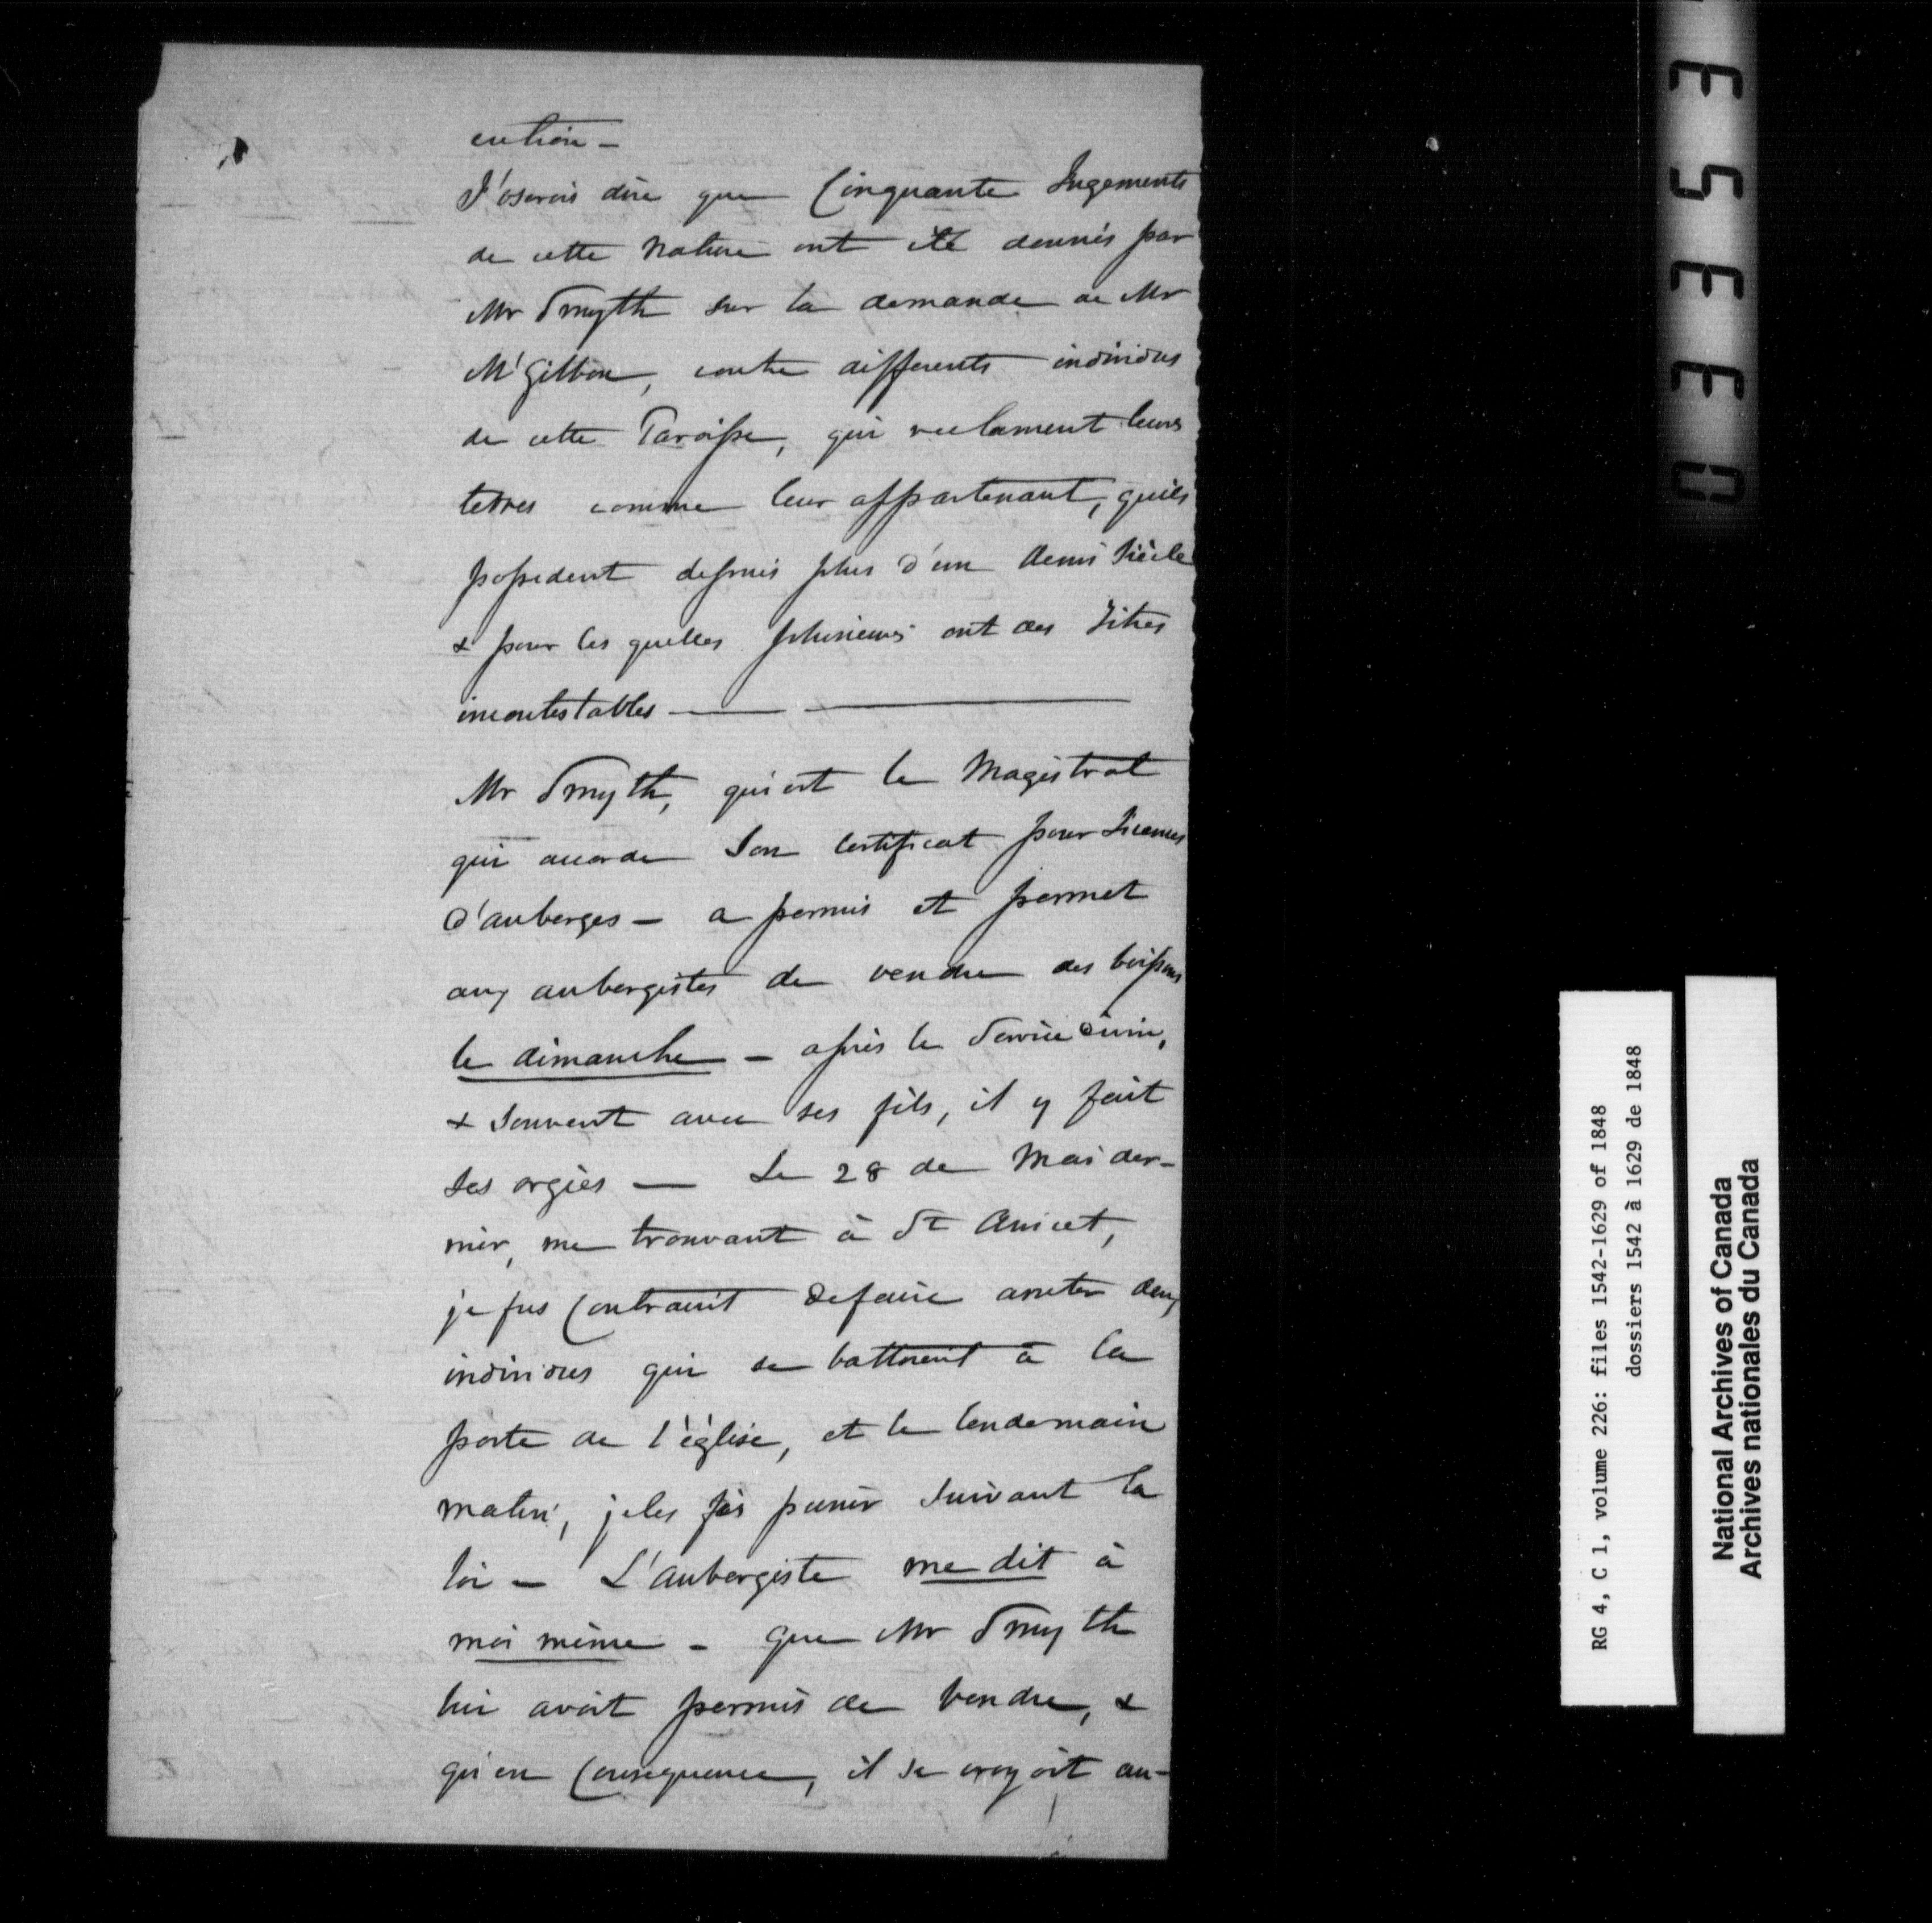 cution —
J'oserois dire que Cinquante Jugements
de cette Nature ont été donnés par
Mr Smyth sur la demande de Mr
McGibbon, contre differents individus
de cette Paroisse, qui reclament leurs
terres comme leur appartenant, qu'ils
possedent depuis plus d'un demi Siècle
& pour les quelles plusieurs ont des Titres
incontestables —
Mr Smyth, qui est le Magistrat
qui accorde Son Certificat pour Licenses
d'auberges — a permis et permet
aux aubergistes de vendre des boissons
le dimanche — après le Service divin,
& Souvent avec ses fils, il y fait
Ses orgies — Le 28 de Mai der-
nier, me trouvant à St Anicet,
je fus Contraint de faire arreter deux
individus qui se battoient à la
porte de l'église, et le lendemain
matin, je les fis punir Suivant la
loi — L'Aubergiste me dit à
moi même — que Mr Smyth
lui avoit permis de Vendre, &
qu'en Consequence, il se croyoit au-
03353
RG 4, C 1, volume 226: files 1542-1629 of 1848
dossiers 1542 à 1629 de 1848
National Archives of Canada
Archives nationales du Canada